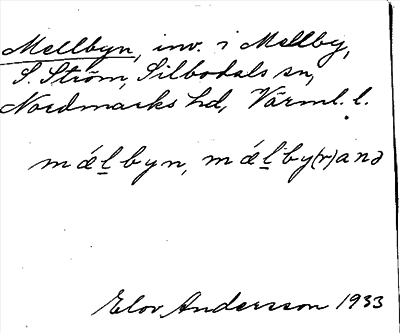 Mellbyn, inv. i Mellby,
S. Ström, Silbodals sn,
Nordmarks hd, Värml. l.
mǽḻbyn, mǽḻby(r)anə
Elov Andersson 1933